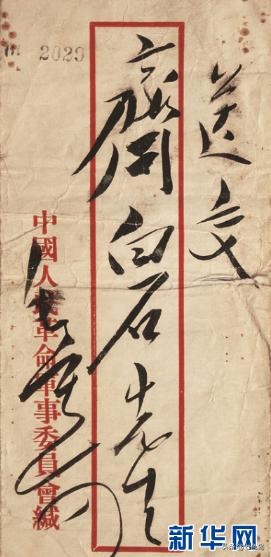 送交
齊白石先生
2029
中國人民革命軍事委員會緘
新华网